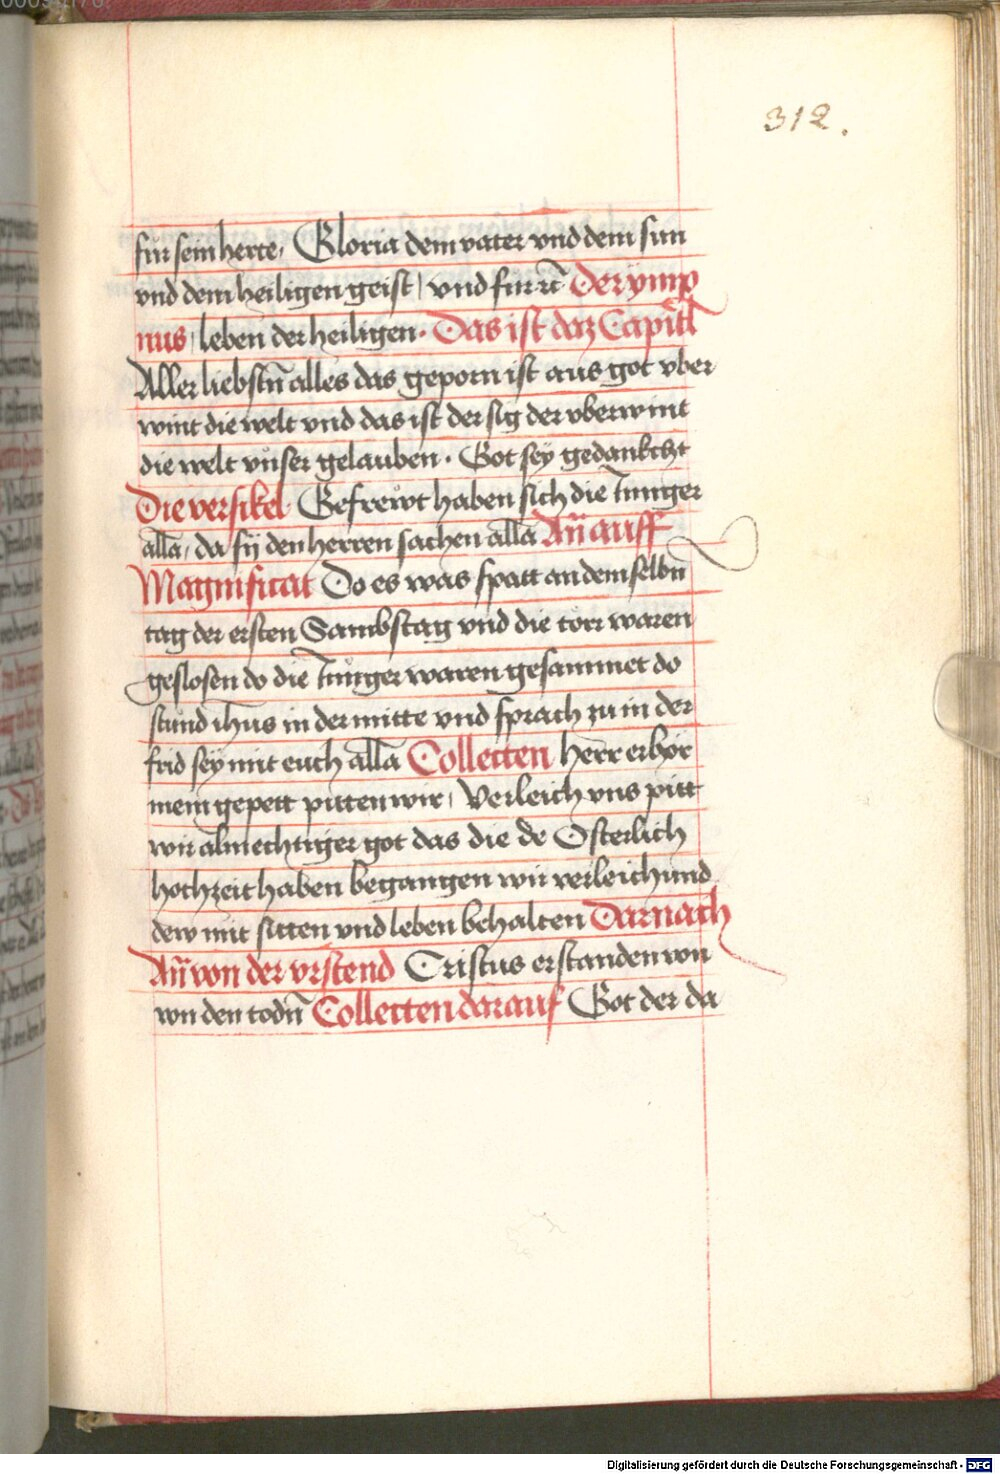 312.
für sein herte, Gloria dem vater vnd dem sun
vnd dem heiligen geist, vnd fur rc Der ymp
nus, leben der heiligen. Das ist daz Capitl
Aller liebstn̄ alles das geporn ist aus got vber
wint die welt vnd das ist der sig der vberwint
die welt vnser gelauben. Got sey gedanckcht
Die versikel Gefrewt haben sich die Junger
all̄a, da sy den herren sachen all̄a An̄ auff
Magnificat Do es was spatt an dem selbn̄
tag der ersten Sambstag vnd die törr waren
geslosen do die Junger waren gesammet do
stund ihus in der mitte vnd sprach zu in der
frid sey mit euch all̄a Collecten Herr erhör
mein gepett pitten wir, Verleich vns pitt
wir almechtiger got das die de Osterlich
hochzeit haben begangen wir verleichund
dew mit sitten vnd leben behalten Darnach
An̄ von der vrstend Cristus erstanden von
von den todn̄ Collecten darauf Got der da
Digitalisierung gefördert durch die Deutsche Forschungsgemeinschaft - DFG